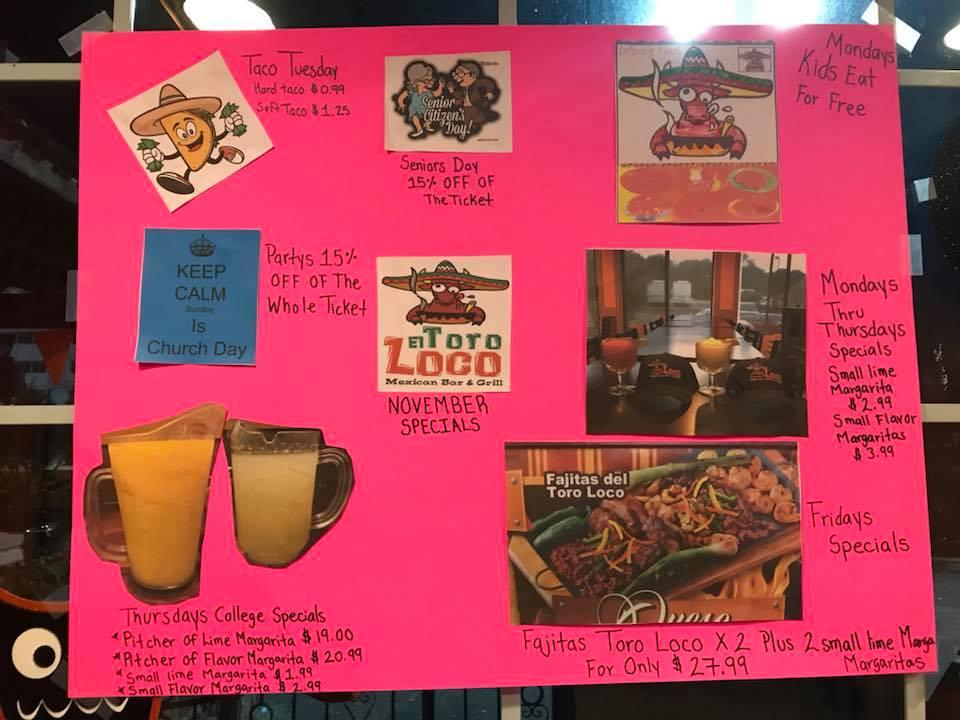 Taco Tuesday
Hard taco $0.99
Soft Taco $1.25
Senior
Citizen's
Day!
Seniors Day
15% OFF OF
The Ticket
Mondays
Kids Eat
For Free
KEEP
CALM
Sunday
Is
Church Day
Partys 15%
OFF OF The
Whole Ticket
El Toro
Loco
Mexican Bar & Grill
NOVEMBER
SPECIALS
Mondays
Thru
Thursdays
Specials
Small lime
Margarita
$2.99
Small Flavor
Margaritas
$3.99
Thursdays College Specials
*Pitcher of Lime Margarita $19.00
*Pitcher of Flavor Margarita $20.99
*Small lime Margarita $1.99
*Small Flavor Margarita $2.99
Fajitas del
Toro Loco
Queso
Fridays
Specials
Fajitas Toro Loco X2 Plus 2 small lime Marga
Margaritas
For Only $27.99